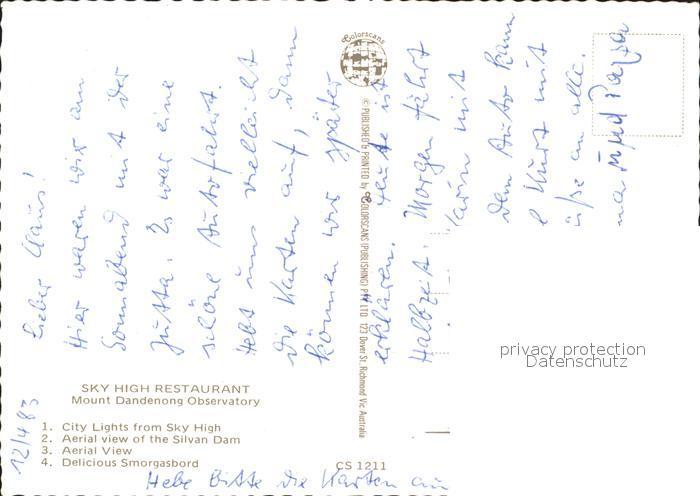 12/4 83
Lieber Claus!
Hier waren wir am
Sonnabend mit der
Jutta. Es war eine
schöne Autofahrt.
Hebt uns vielleicht
die Karten auf, dann
können wir später
erklären. Heute ist
Halbzeit. Morgen fährt
Karin mit
dem Auto kann
Kurt mit
üße an alle.
ma und Papa
Hebe Bitte die Karten auf
SKY HIGH RESTAURANT
Mount Dandenong Observatory
1. City Lights from Sky High
2. Aerial view of the Silvan Dam
3. Aerial View
4. Delicious Smorgasbord
CS 1211
Colorscans
© PUBLISHED & PRINTED by COLORSCANS (PUBLISHING) PTY LTD. 123 Dover St. Richmond Vic Australia
privacy protection
Datenschutz